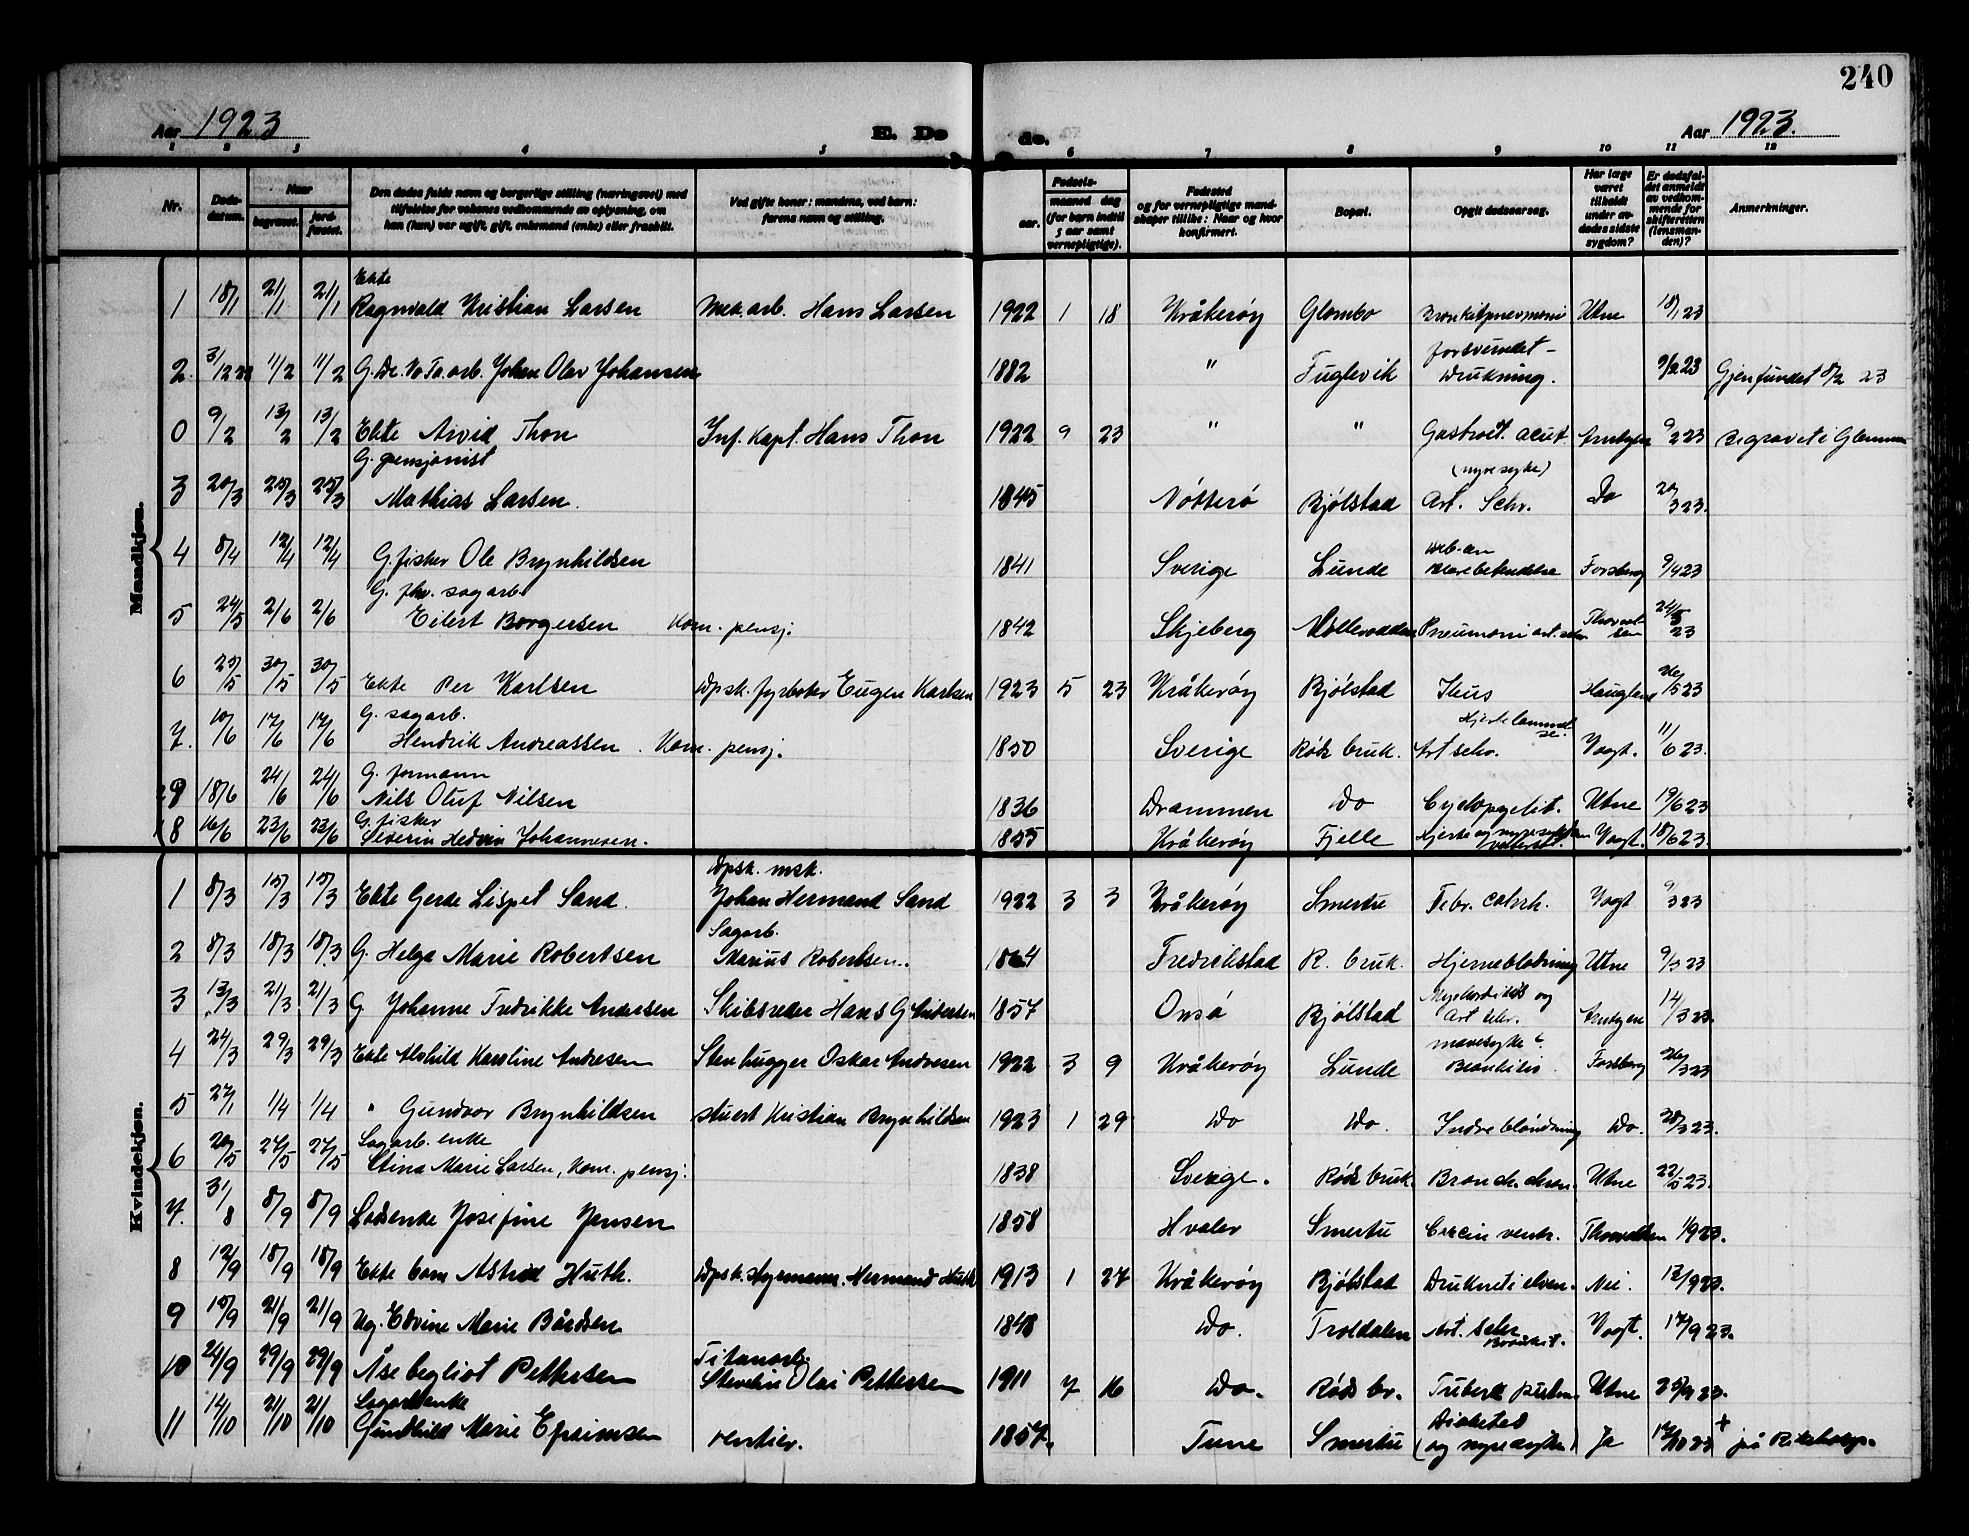 240
Aar 1923 E. Døde. Aar 1923.
1 2 3 4 5 6 7 8 9 10 11 12
Nr. Døds-datum. Naar begravet. jord-fæstet. Den dødes fulde navn og borgerlige stilling (næringsvei) med tilføielse for voksnes vedkommende av oplysning, om han (hun) var ugift, gift, enkemand (enke) eller fraskilt. Ved gifte koner: mandens, ved børn: farens navn og stilling. Fødsels- aar. maaned dag (for børn indtil 5 aar samt vernepligtige). Fødested og for vernepligtige mandskaper tillike: Naar og hvor konfirmert. Bopæl. Opgit dødsaarsag. Har læge været tilkaldt under avdødes sidste sygdom? Er dødsfaldet anmeldt av vedkommende for skifteretten (lensmanden)? Anmerkninger.
Mandkjøn.
1 18/1 21/1 21/1 Ekte Ragnvald Kristian Larsen Mek.arb. Hans Larsen 1922 1 18 Kråkerøy Glombo Bronkitpnevmoni Utne 18/1 23
2. 3/12 22 11/2 11/2 G. De. No Fa. arb. Johan Olav Johansen 1882 " Fuglevik forsvundet - Drukning. 9/2 23 Gjenfundet 8/2 23
0 9/2 13/2 13/2 Ekte Arvid Thon Inf. Kapt. Hans Thon 1922 9 23 " " Gastroit. acut. Arnbygen 9/2 23 Begravet i Glemmen
3 20/3 25/3 25/3 G. pensjonist Mathias Larsen. 1845 Nøtterø Bjølstad (nyresyke) Art. Schr. Do 20/3 23.
4 8/4 12/4 12/4 G. fisker Ole Brynhildsen 1841 Sverige Lunde Blærebetendelse Forsberg 9/4 23
5 24/5 2/6 2/6 G. fhv. sagarb. Eilert Borgersen Kom. pensj. 1842 Skjeberg Pneumoni art. scler Thorvaldsen 24/5 23
6 25/5 30/5 30/5 Ekte Per Karlsen Dpsk. fyrbøter Eugen Karlsen 1923 5 23 Kråkerøy Bjølstad Ikus Haugland 26/5 23
7. 10/6 17/6 17/6 G. sagarb. Hendrik Andreassen. Kom. pensj. 1850 Sverige Røds bruk. Hjertelammelse. Art sclr. Vogt. 11/6 23.
9 18/6 24/6 24/6 G. formann Nils Oluf Nilsen 1836 Drammen Do Cyclopyelit. Utne 19/6 23
8 16/6 23/6 23/6 G. fisker Severin Hedvin Johannesen. 1855 Kråkerøy Fjelle Hjerte og nyresykdom Vogt. 18/6 23.
Kvindekjøn.
1 8/3 15/3 15/3 Ekte Gerda Lispet Sand. Dpsk. msk. Johan Hermand Sand 1922 3 3 Kråkerøy Smertu Febr. catrrh. Vogt 9/3 23
2 8/3 18/3 18/3 G. Helga Marie Robertsen Sagarb. Marius Robertsen. 1864 Fredrikstad R. bruk. Hjerneblødning Utne 9/3 23
3 13/3 21/3 21/3 G. Johanne Fredrikke Andersen Skibsreder Hans G Andersen 1857 Onsø Bjølstad Myokarditis og Art sclr. Arnbygen 14/3 23.
4 24/3 29/3 29/3 Ekte Alshild Karoline Andresen Stenhugger Oskar Andresen 1922 3 9 Kråkerøy Lunde mavesyke & Bronkitis. Forsberg 26/3 23
5 27/1 1/4 1/4 " Gundvor Brynhildsen stuert Kristian Brynhildsen 1923 1 29 Do Do. Indre blødning Do. 28/3 23.
6 20/5 27/5 27/5 Sagarb. enke Stina Marie Larsen, Kom. pensj. 1838 Sverige. Røds bruk. Bronch. chron. Utne 22/5 23.
7. 31/8 8/9 8/9 Losenke Josefine Jensen 1858 Hvaler Smertu Carcin ventr. Thorvaldsen 1/9 23.
8 12/9 18/9 18/9 Ekte barn Astrid Huth. Dpsk. styrmann. Hermand Huth 1913 1 27 Kråkerøy Bjølstad Druknet i elven. Nei. 13/9 23.
9 15/9 21/9 21/9 Ug. Edvine Marie Bårdsen 1848 Do. Troldalen Art. sclr Bronkit. Vogt. 17/9 23.
10 24/9 29/9 29/9 Åse begliot Pettersen Titanarb. Steverin Olai Pettersen 1911 7 16 Do. Røds br. Tuberk pulm Utne 25/9 23.
11 14/10 21/10 21/10 Sagarb enke Gundhild Marie Efraimsen rentier. 1857. Tune Smertu Diabetes (og nyresyke) Ja 17/10 23 + på Rikshosp.